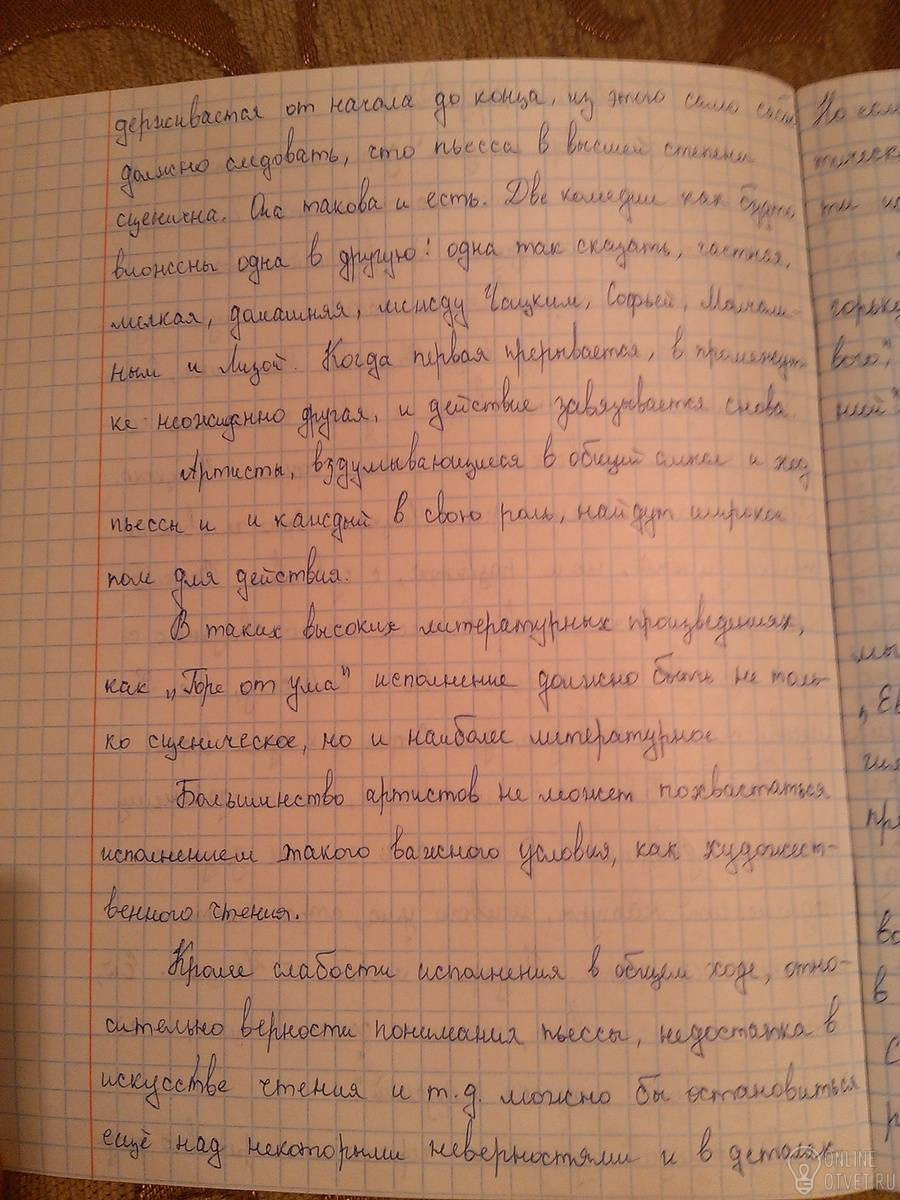 держивается от начала до конца, из этого само собой
должно следовать, что пьесса в высшей степени
сценична. Она такова и есть. Две комедии как будто
вложены одна в другую: одна так сказать, частная,
мелкая, домашняя, между Чацким, Софьей, Молчали-
ным и Лизой. Когда первая прерывается, в промежут-
ке неожиданно другая, и действие завязывается снова
Артисты, вздумывающиеся в общий смысл и ход
пьессы и и каждый в свою роль, найдут широкое
поле для действия.
В таких высоких литературных произведениях,
как „Горе от ума" исполнение должно быть не толь-
ко сценическое, но и наиболее литературное
Большинство артистов не может похвастаться
исполнением такого важного условия, как художест-
венного чтения.
Кроме слабости исполнения в общем ходе, отно-
сительно верности понимания пьессы, недостатка в
искусстве чтения и т.д. можно бы остановиться
ещё над некоторыми неверностями и в деталях
ONLINE
OTVET.RU